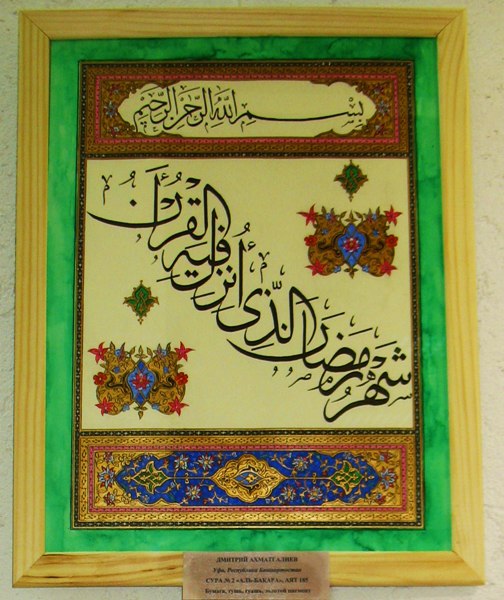 بسم الله الرحمن الرحيم
شهر رمضان الذي أنزل فيه القرآن
ДМИТРИЙ АХМАТГАЛИЕВ
Уфа, Республика Башкортостан
СУРА № 2 «АЛЬ-БАКАРА», АЯТ 185
Бумага, тушь, гуашь, золотой пигмент